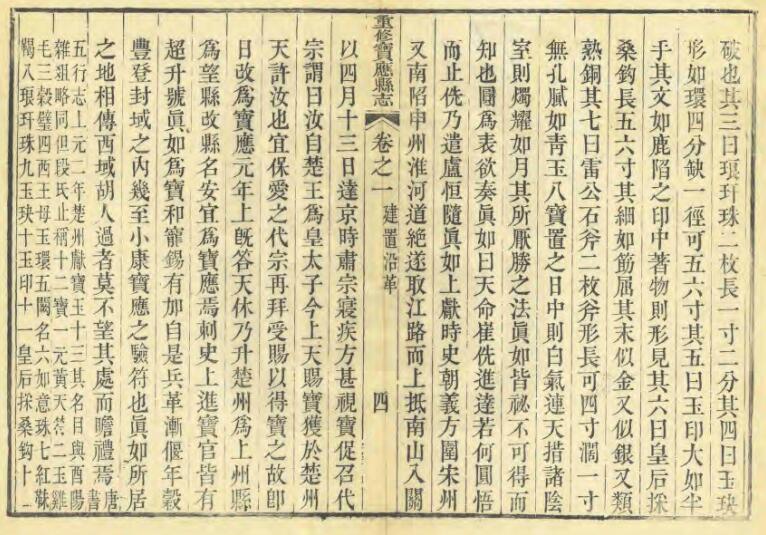 破也其三曰琅玕珠二枚長一寸二分其四曰玉玦
形如環四分缺一徑可五六寸其五曰玉印大如半
手其文如鹿陷之印中著物則形見其六曰皇后採
桑鈎長五六寸其細如筯屈其末似金又似銀又類
熟銅其七曰雷公石斧二枚斧形長可四寸濶一寸
無孔膩如靑玉八寶置之日中則白氣連天措諸陰
室則燭耀如月其所厭勝之法眞如皆祕不可得而
知也圓爲表欲奏眞如曰天命崔侁進達若何圓悟
而止侁乃遣盧恒隨眞如上獻時史朝義方圍宋州
又南陷申州淮河道絶遂取江路而上抵南山入關
重修寶應縣志
卷之一 建置沿革 四
以四月十三日達京時肅宗寢疾方甚視寶促召代
宗謂曰汝自楚王爲皇太子今上天賜寶獲於楚州
天許汝也宜保愛之代宗再拜受賜以得寶之故卽
日改爲寶應元年上旣答天休乃升楚州爲上州縣
爲望縣改縣名安宜爲寶應焉刺史上進寶官皆有
超升號眞如爲寶和寵錫有加自是兵革漸偃年穀
豐登封域之內幾至小康寶應之驗符也眞如所居
之地相傳西域胡人過者莫不望其處而瞻禮焉唐書
五行志上元二年楚州獻寶玉十三其名目與酉陽
雜俎略同但段氏止稱十二寶一元黃天符二玉雞
毛三穀璧四西王母玉環五闕名六如意珠七紅靺
鞨八琅玕珠九玉玦十玉印十一皇后採桑鈎十